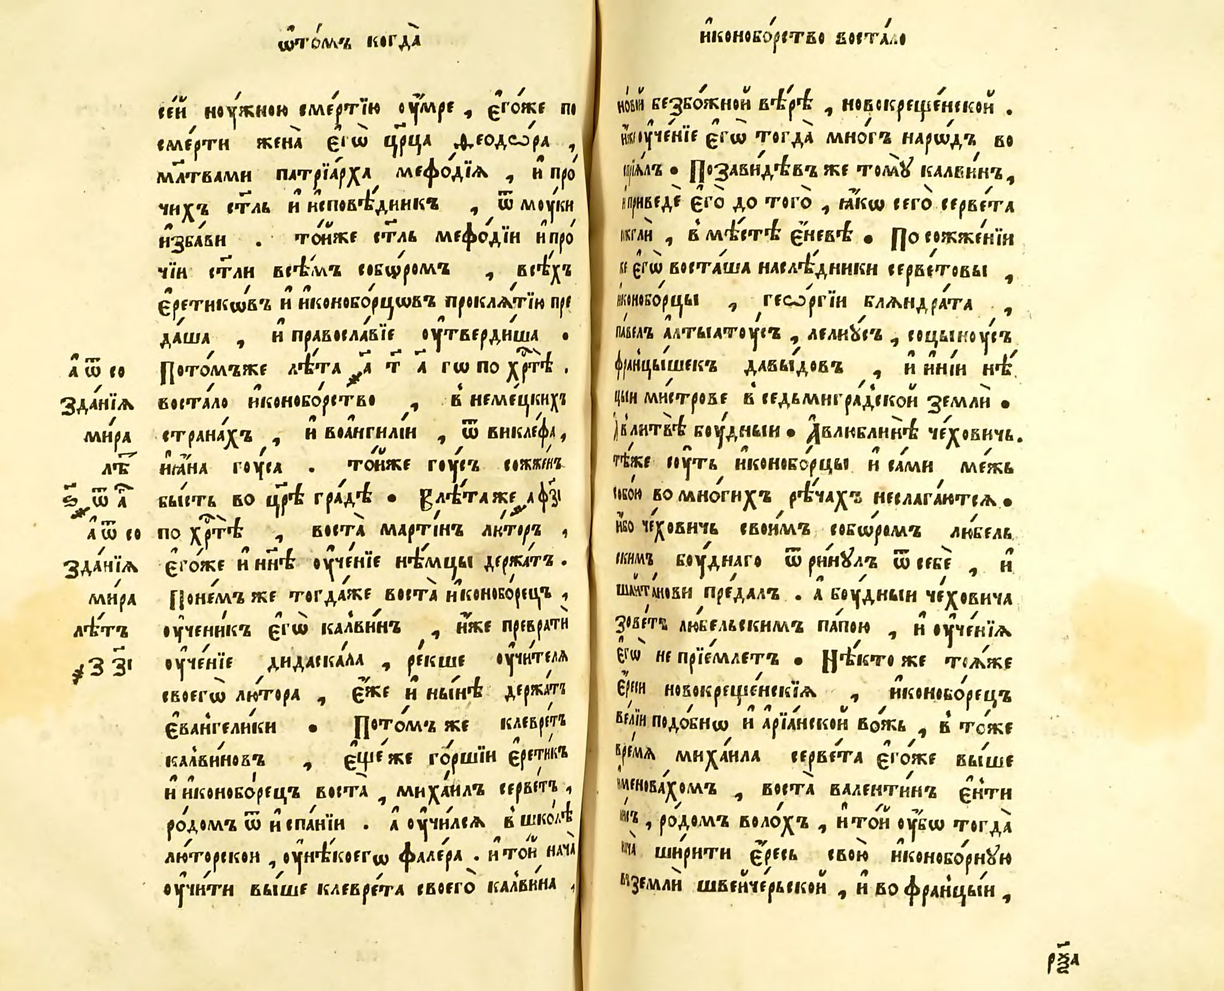 ѿто́мъ когда̀
се́й ноу́жною сме́ртїю оу҆́мре , є҆го́же по
сме́рти жена̀ є҆гѡ̀ цр҃ца ѳеодѡ́ра ,
мл҃твами патрїа́рха мефо́дїѧ , и҆ про́
чихъ ст҃ль и҆ и҆сповѣ́дникъ , ѿ моу́ки
и҆зба́ви . то́йже ст҃ль мефо́дїи и҆про́
чїи ст҃ли всѣ́мъ собѡ́ромъ , всѣ́хъ
є҆ретикѡ́въ и҆ и҆конобо́рцѡвъ проклѧ́тїю пре
да́ша , и҆ правосла́вїе оу҆тверди́ша .
Пото́мъже лѣ́та ҂а т҃ а҃ гѡ по хр҃тѣ̀ .
воста́ло и҆конобо́рство , в҆ неме́цкихъ
страна́хъ , и҆ воа́нгилїи , ѿ викле́фа ,
и҆ѡа́на гоу́са . то́йже гоу́съ сожже́нъ
бы́сть во цр҃ѣ гра́дѣ . В лѣ́та же ҂а ф҃зі
по хр҃тѣ̀ , воста̀ марти́нъ лю́торъ ,
є҆го́же и҆ нн҃ѣ оу҆че́нїе нѣ́мцы держа́тъ .
По не́мъ же тогда́же воста̀ и҆конобо́рецъ ,
оу҆чени́къ є҆гѡ̀ ка́лви́нъ , и҆́же превратѝ
оу҆че́нїе дидаска́ла , ре́кше оу҆чи́телѧ
своегѡ̀ лю́тора , є҆́же и҆ ны́нѣ держа́тъ
є҆ва́нгелики . Пото́мъ же клевре́тъ
ка́лви́новъ , є҆ще́же го́ршїи є҆рети́къ
и҆ и҆конобо́рецъ воста̀ , миха́илъ серве́тъ ,
ро́домъ ѿ и҆спа́нїи . а҆ оу҆чи́лсѧ в҆ шко́лѣ
лю́торскои , оу҆нѣ́коегѡ фале́ра . и҆ то́й нача̀
оу҆чи́ти вы́ше клевре́та своего̀ ка́лви́на ,
а҆ ѿ со
зда́нїѧ
ми́ра
лѣ҃
ѕ҃ ѿ а҃
а҆ ѿ со
зда́нїѧ
ми́ра
лѣ́тъ
҂з зі҃
и҆конобо́рство воста́ло
но́вой безбо́жной вѣ́рѣ , новокреще́нской .
оу҆че́нїе є҆гѡ̀ тогда̀ мно́гъ наро́дъ во
спрїѧ́лъ . Позави́дѣвъ же томꙋ̀ ка́лви́нъ ,
и҆ приведѐ є҆го̀ до того̀ , ꙗ҆́кѡ сего̀ серве́та
сожглѝ , в҆ мѣ́стѣ є҆́невѣ . По сожже́нїи
же є҆гѡ̀ воста́ша наслѣ́дники серве́товы ,
и҆конобо́рцы , геѡ́ргїи блѧ́ндра́та ,
па́велъ а҆лтыатоу́съ , ле́лиꙋсъ , соцы́ноусъ
францы́шекъ давы́довъ , и҆ и҆ні́и нѣ́
цыи ми́строве в҆ седьмигра́дской землѝ .
А҆ в литвѣ̀ боу́дныи . А҆ в лю́блинѣ че́ховичь .
тѣ́же соу́ть и҆конобо́рцы и҆ са́ми ме́жь
собо́ю во мно́гихъ рѣ́чахъ неслага́ютсѧ .
и҆́бо че́ховичь свои́мъ собѡ́ромъ лю́бель
скимъ боу́днаго ѿ ри́нꙋлъ ѿ себѐ , и҆
шаи҆та́нови пре́далъ . а҆ боу́дныи че́ховича
зове́тъ лю́бельскимъ па́пою , и҆ оу҆че́нїѧ
є҆гѡ̀ не прїе́млетъ . Нѣ́кто же тоѧ́же
є҆́реси новокреще́нскїѧ , и҆конобо́рецъ
ве́лїи подо́бнѡ и҆ а҆рїа́нской во́жь , в҆ то́же
вре́мѧ миха́ила серве́та є҆го́же вы́ше
и҆менова́хомъ , воста̀ валенти́нъ є҆́нти
, ро́домъ воло́хъ , и҆ то́й оу҆́бѡ тогда̀
нача̀ шири́ти є҆́ресь свою̀ и҆конобо́рнꙋю
в҆ землѝ швейче́рьской , и҆ во фра́нцыи ,
рѯ҃а